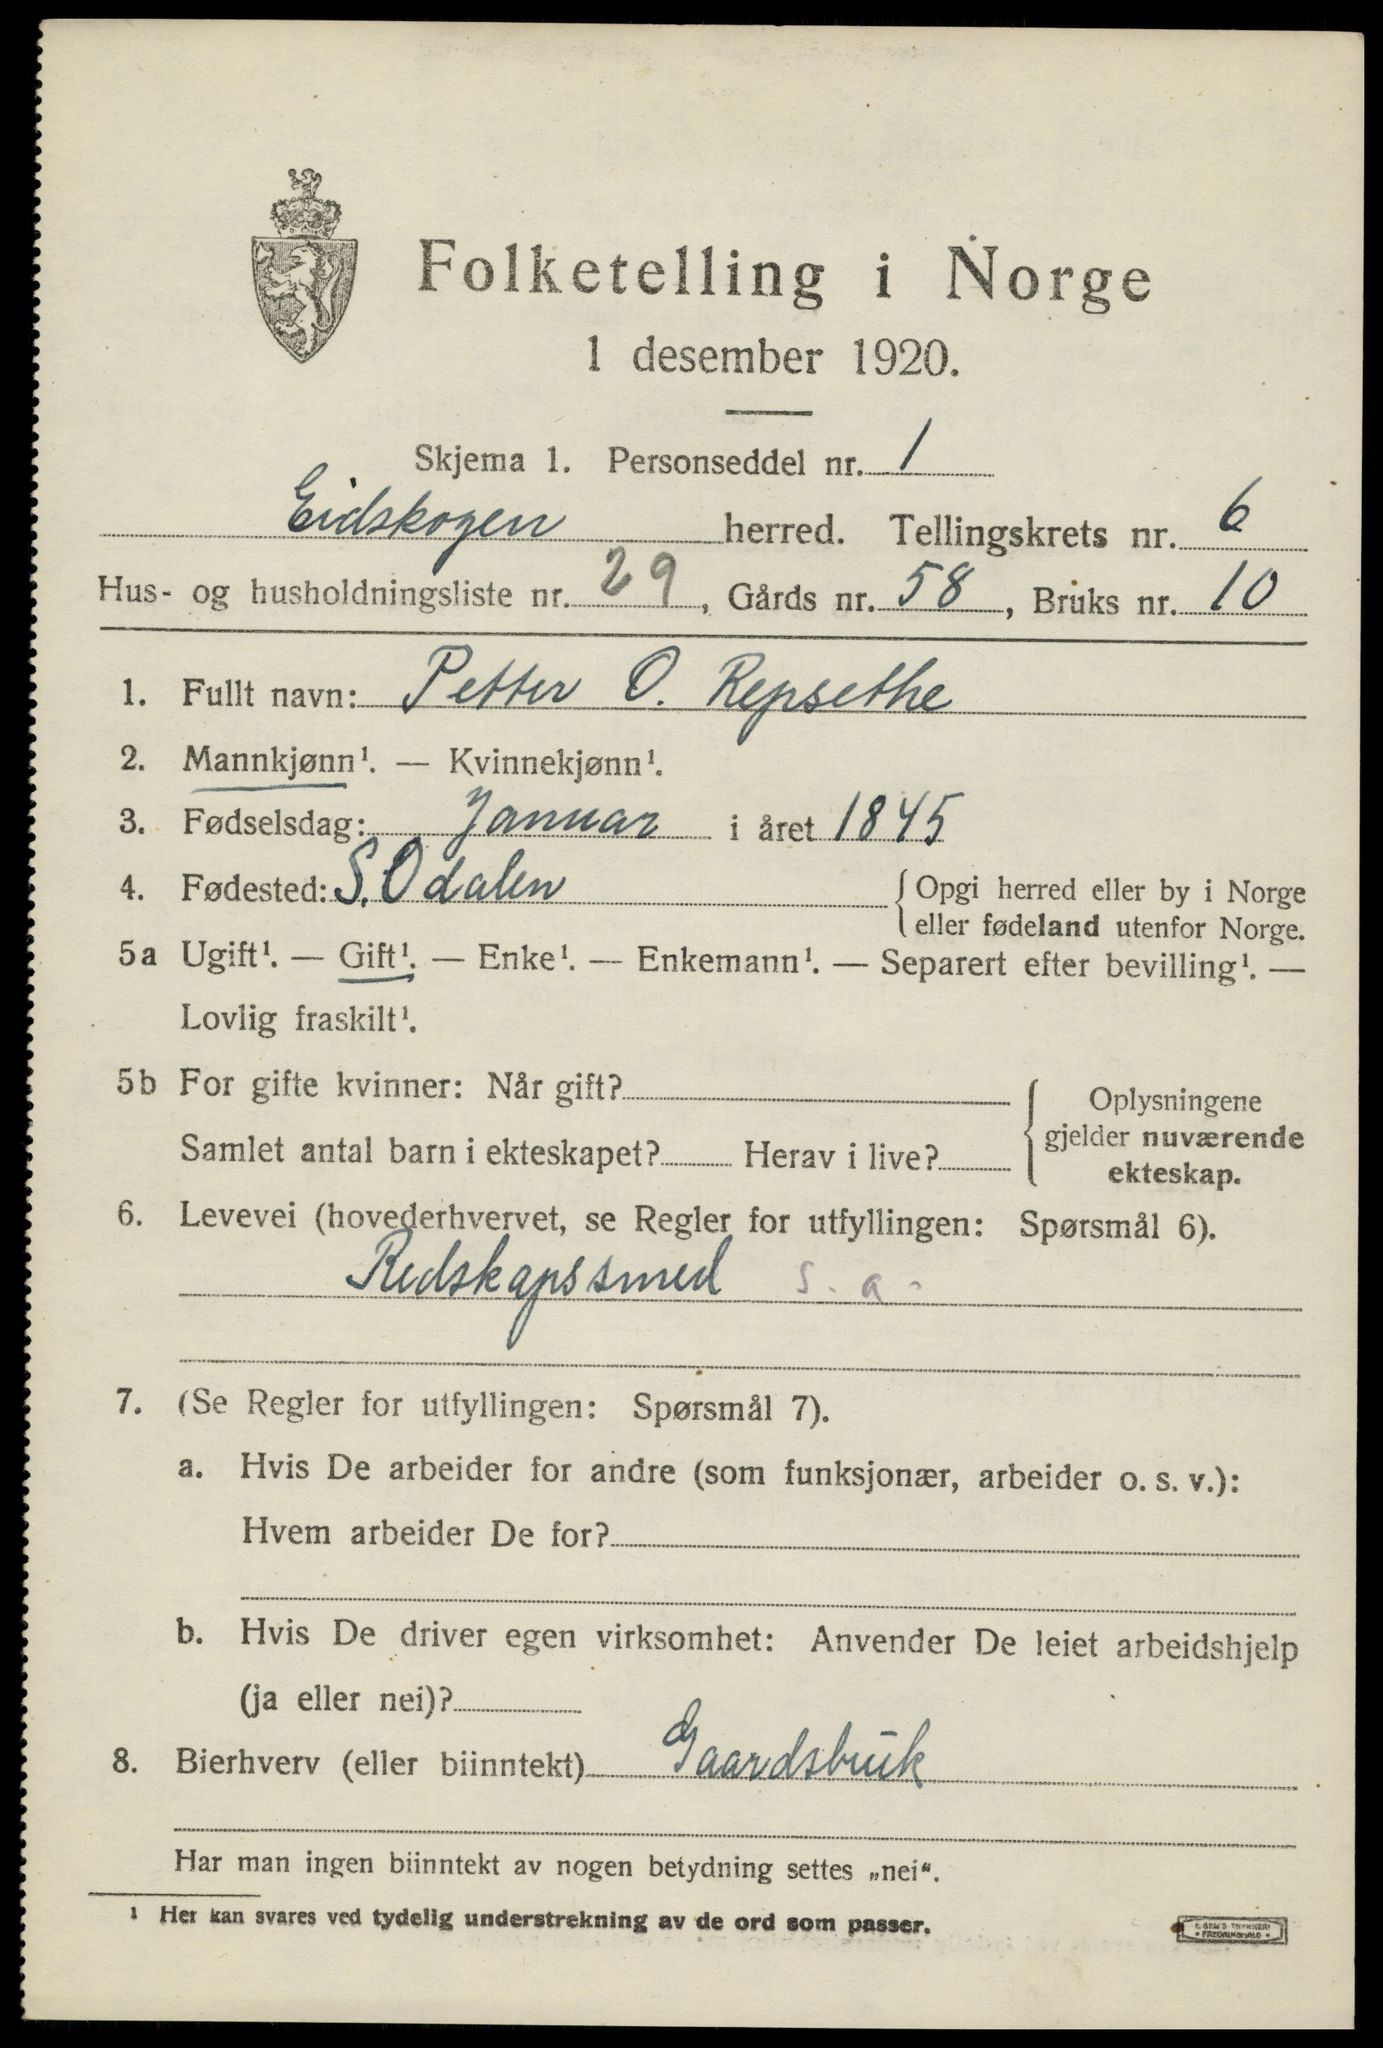 Folketelling i Norge
1 desember 1920.
Skjema 1. Personseddel nr. 1
Eidskogen herred. Tellingskrets nr. 6
Hus- og husholdningsliste nr. 29, Gårds nr. 58, Bruks nr. 10
1. Fullt navn: Petter O. Repsethe
2. Mannkjønn¹. — Kvinnekjønn¹.
3. Fødselsdag: Januar i året 1845
4. Fødested: S. Odalen { Opgi herred eller by i Norge
eller fødeland utenfor Norge.
5a Ugift¹. — Gift¹. — Enke¹. — Enkemann¹. — Separert efter bevilling¹. —
Lovlig fraskilt¹.
5b For gifte kvinner: Når gift?
Samlet antal barn i ekteskapet? Herav i live?
{ Oplysningene
gjelder nuværende
ekteskap.
6. Levevei (hovederhvervet, se Regler for utfyllingen: Spørsmål 6).
Redskapssmed s. a.
7. (Se Regler for utfyllingen: Spørsmål 7).
a. Hvis De arbeider for andre (som funksjonær, arbeider o. s. v.):
Hvem arbeider De for?
b. Hvis De driver egen virksomhet: Anvender De leiet arbeidshjelp
(ja eller nei)?
8. Bierhverv (eller biinntekt) Gaardsbruk
Har man ingen biinntekt av nogen betydning settes „nei“.
¹ Her kan svares ved tydelig understrekning av de ord som passer.
TRYKKERI
• FREDRIKSHALD •